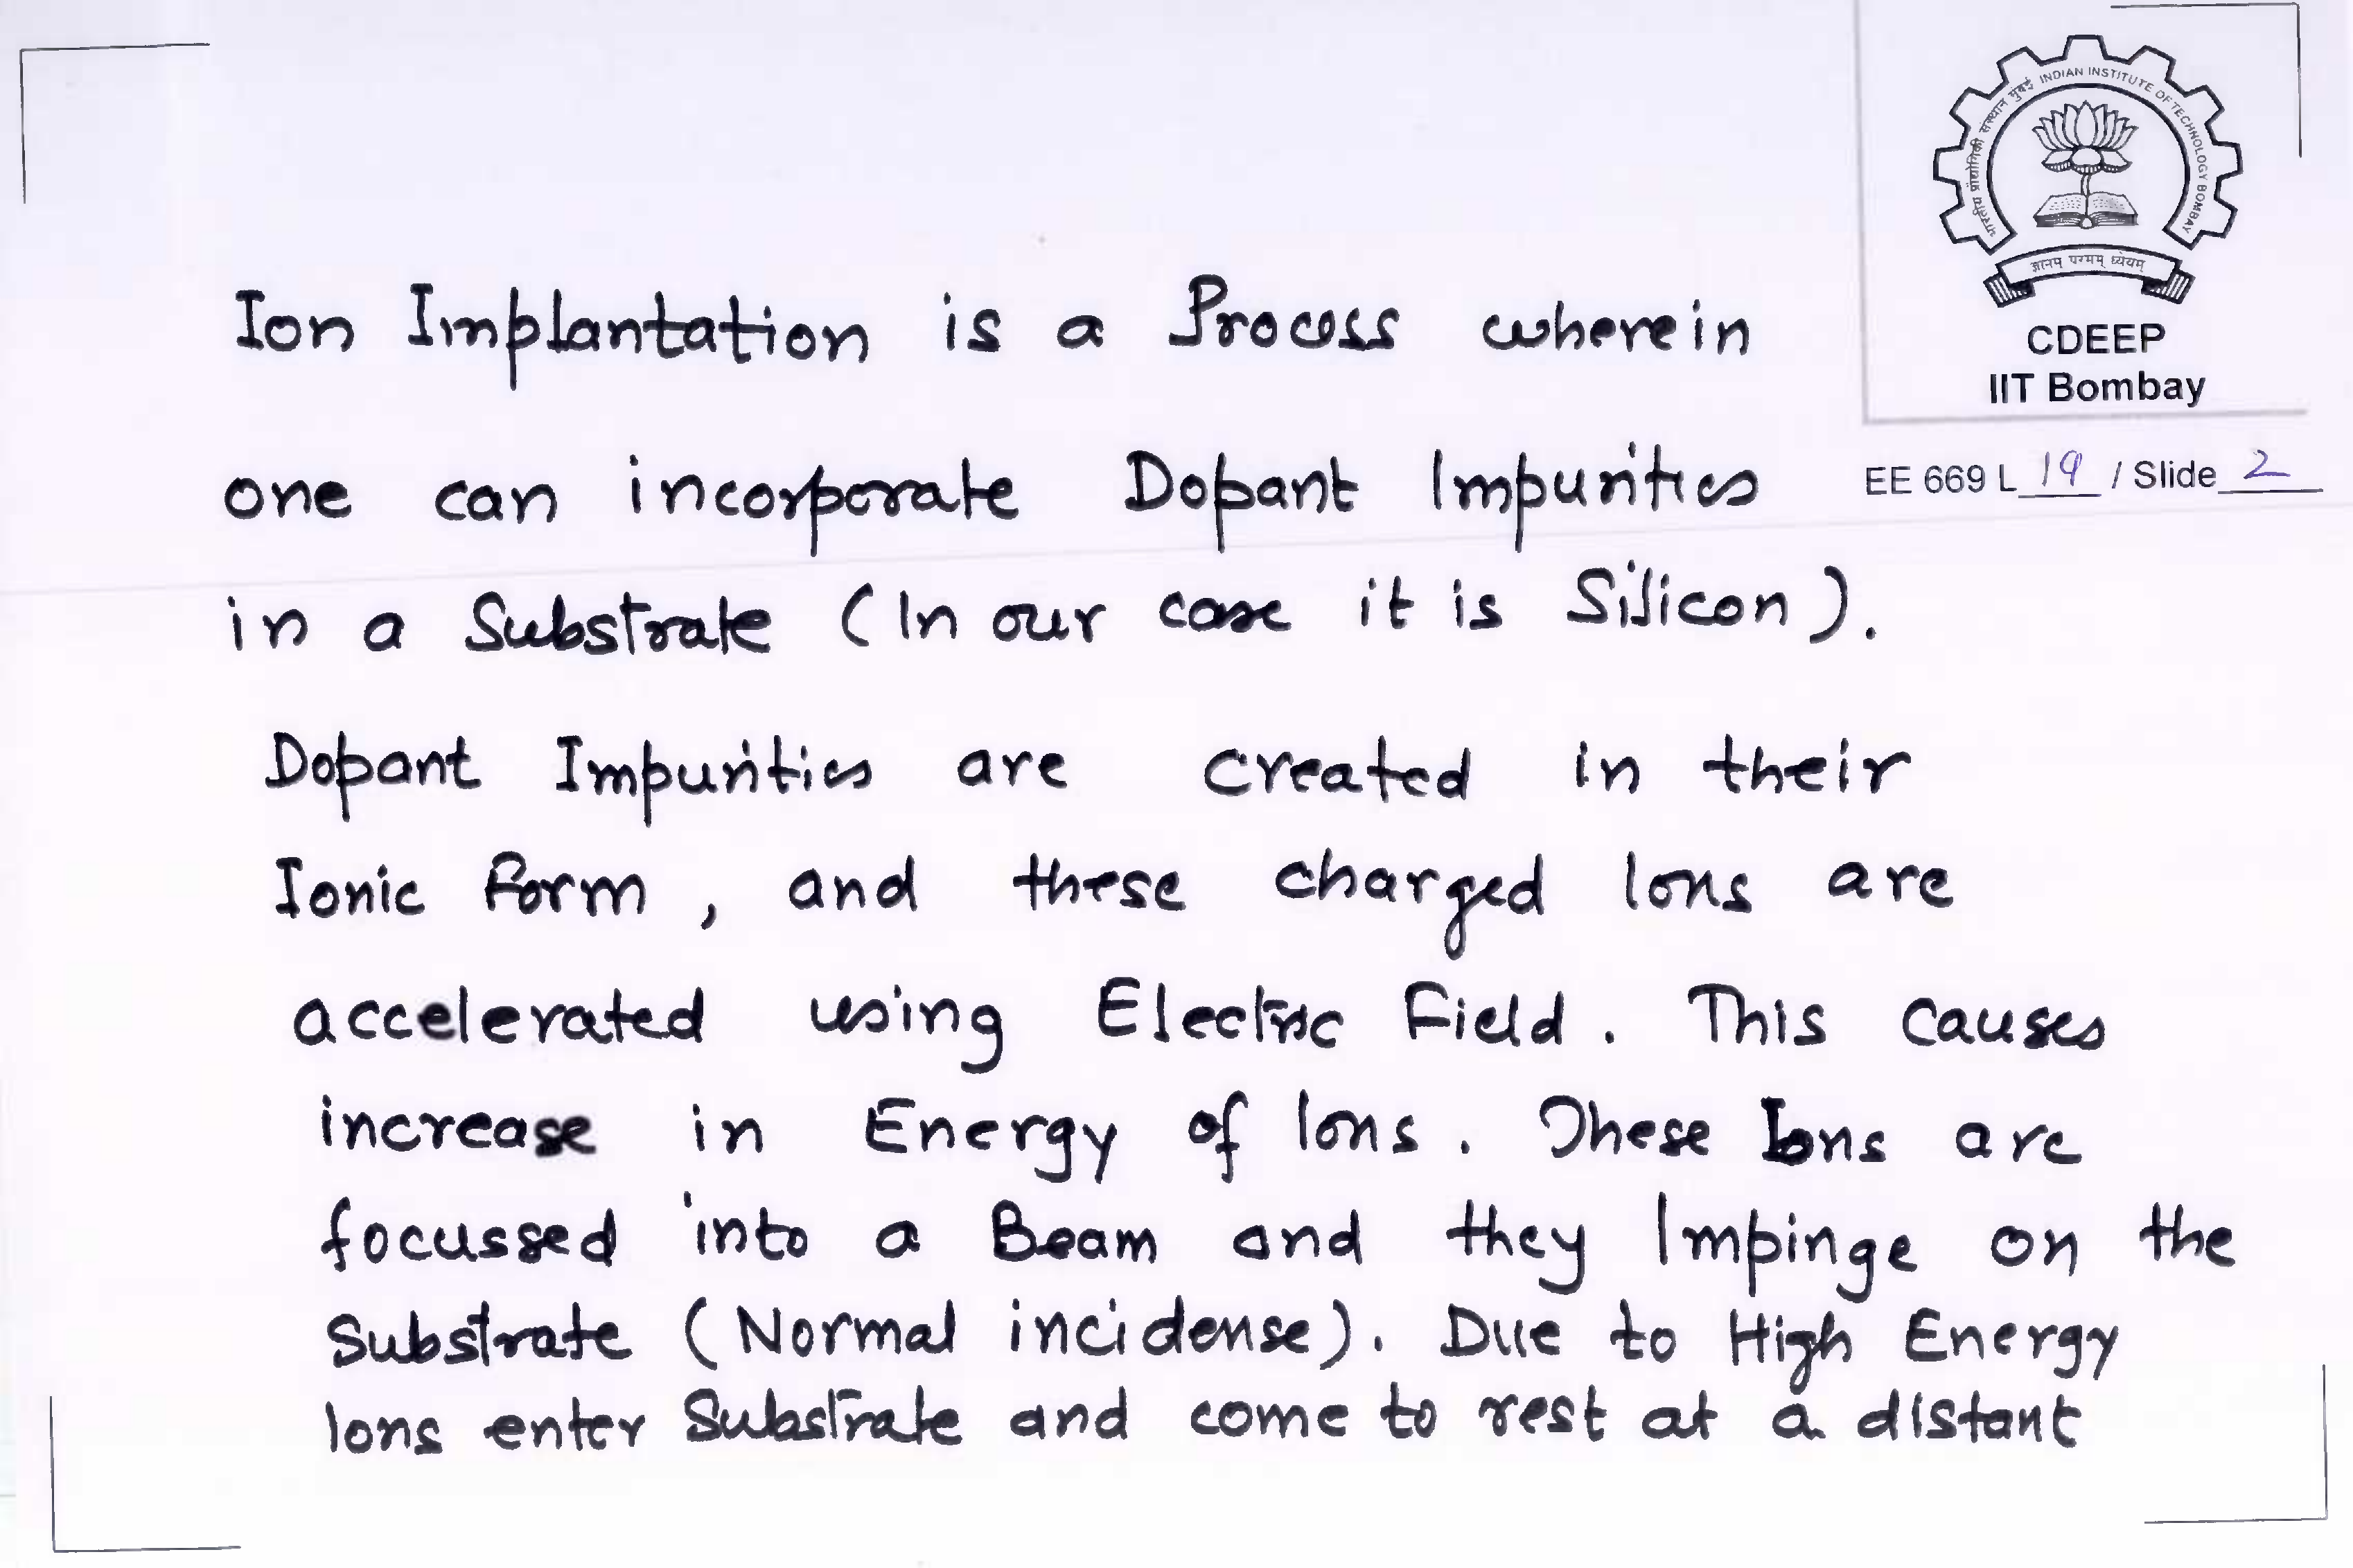 भारतीय प्रौद्योगिकी संस्थान मुंबई INDIAN INSTITUTE OF TECHNOLOGY BOMBAY
ज्ञानम् परमम् ध्येयम्
CDEEP
IIT Bombay
EE 669 L 19 / Slide 2
Ion Implantation is a Process wherein
one can incorporate Dopant Impurities
in a Substrate (In our case it is Silicon).
Dopant Impurities are created in their
Ionic form, and these charged Ions are
accelerated using Electric Field. This causes
increase in Energy of Ions. These Ions are
focussed into a Beam and they Impinge on the
Substrate (Normal incidense). Due to High Energy
Ions enter Substrate and come to rest at a distant